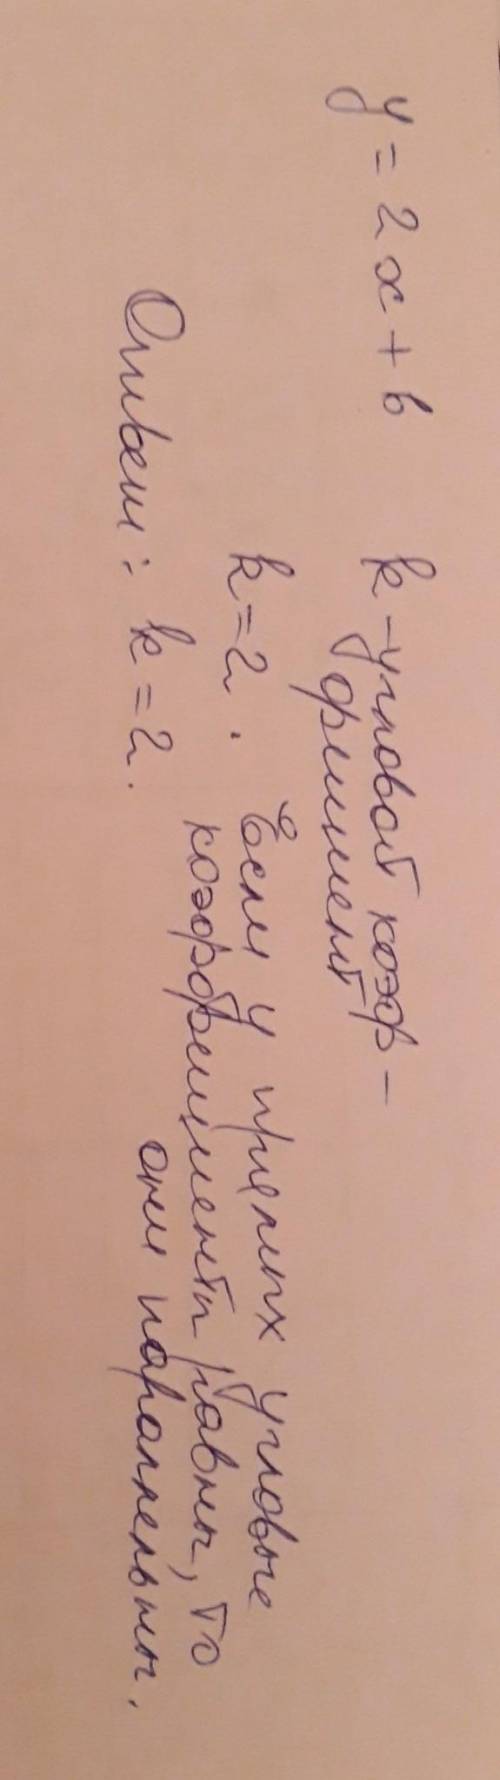 y = 2x + b k - угловой коэф-
фициент
k = 2. Если у прямых угловые
коэффициенты равны, то
Ответ: k = 2. они параллельны.